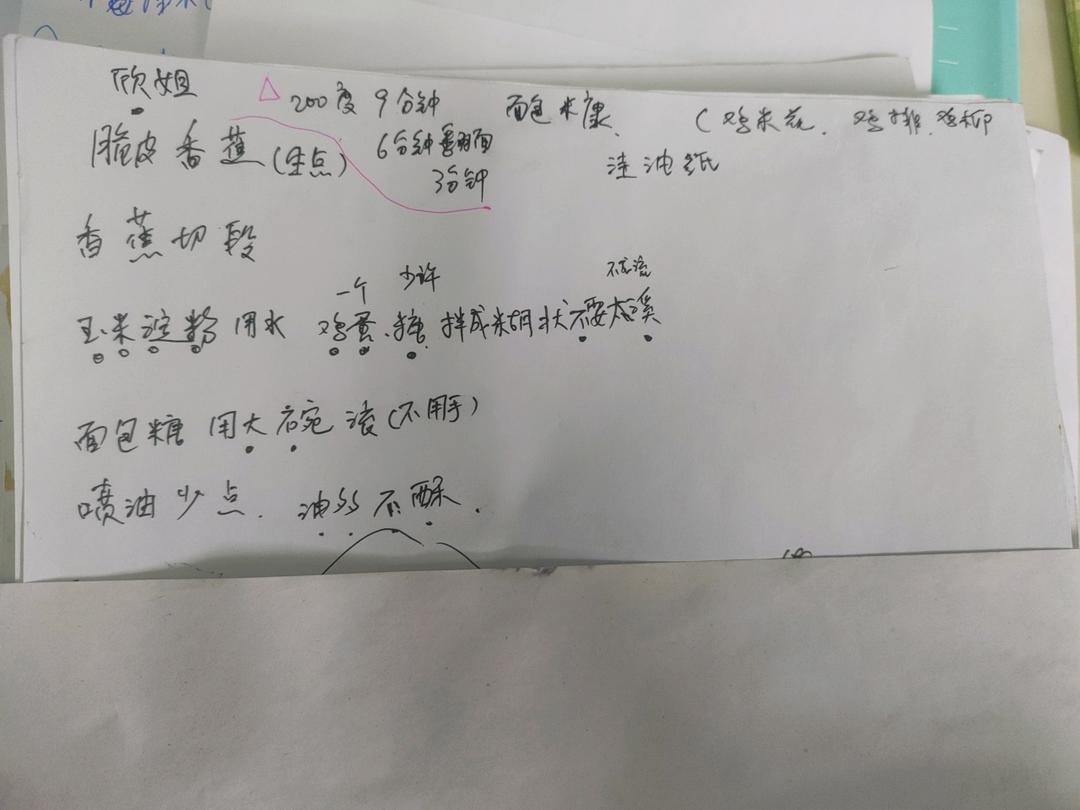 欣姐
△ 200度 9分钟 面包米康 (鸡米花. 鸡排. 鸡柳
脆皮香蕉(生点) 6分钟翻面 洼油纸
3分钟
香蕉切段
一个 少许
玉米淀粉 用水 鸡蛋、糖 拌成米胡状不要太溪
面包糖 用大碗滚(不用手)
喷油少点. 油多不酥.